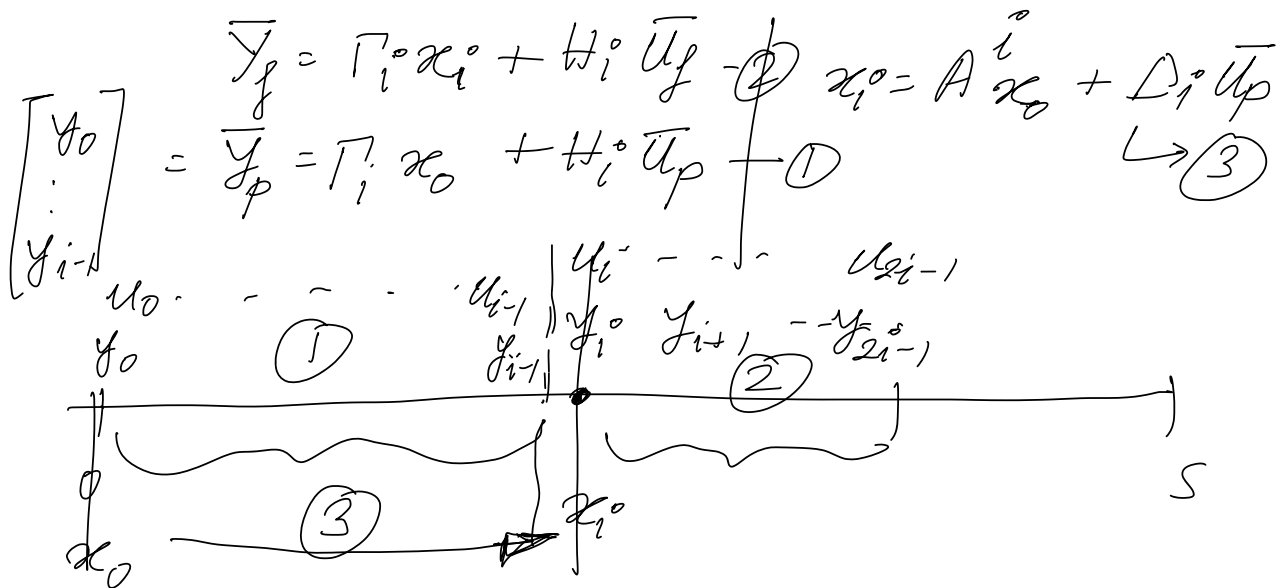 Y̅_f = Γ_i x_i + H_i U̅_f - ② x_i = A^i x_0 + Δ_i U̅_p
[y_0 ⋮ y_{i-1}] = Y̅_p = Γ_i x_0 + H_i U̅_p — ① ↳ ③
u_0 . - - . u_{i-1} u_i - - - u_{2i-1}
y_0 ① y_{i-1} y_i y_{i+1} -- y_{2i-1}
②
0 S
③ x_i
x_0